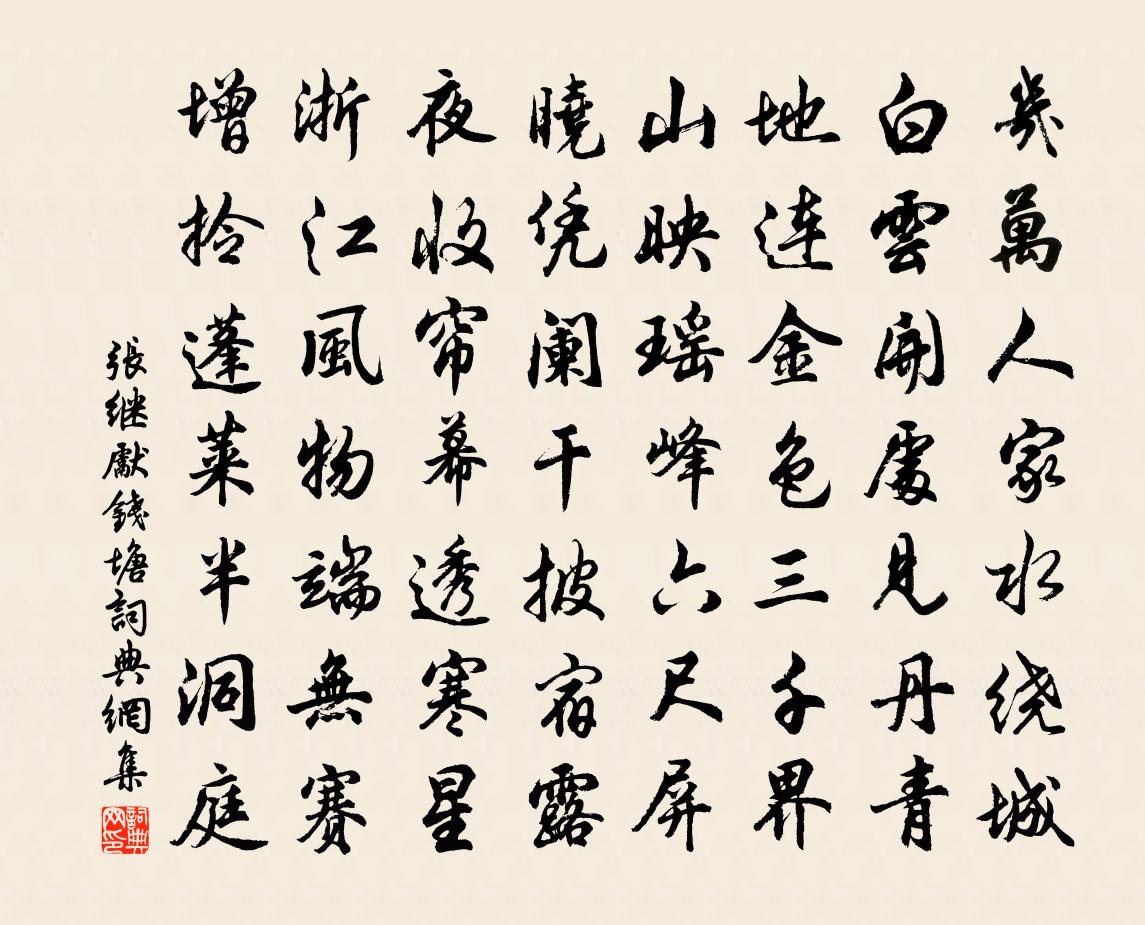 幾萬人家水绕城
白雲開處見丹青
地連金色三千界
山映瑶峰六尺屏
曉凭阑干披宿露
夜收帘幕透寒星
浙江風物端無賽
增拾蓬萊半洞庭
張继獻錢塘詞典網集
詞典网印